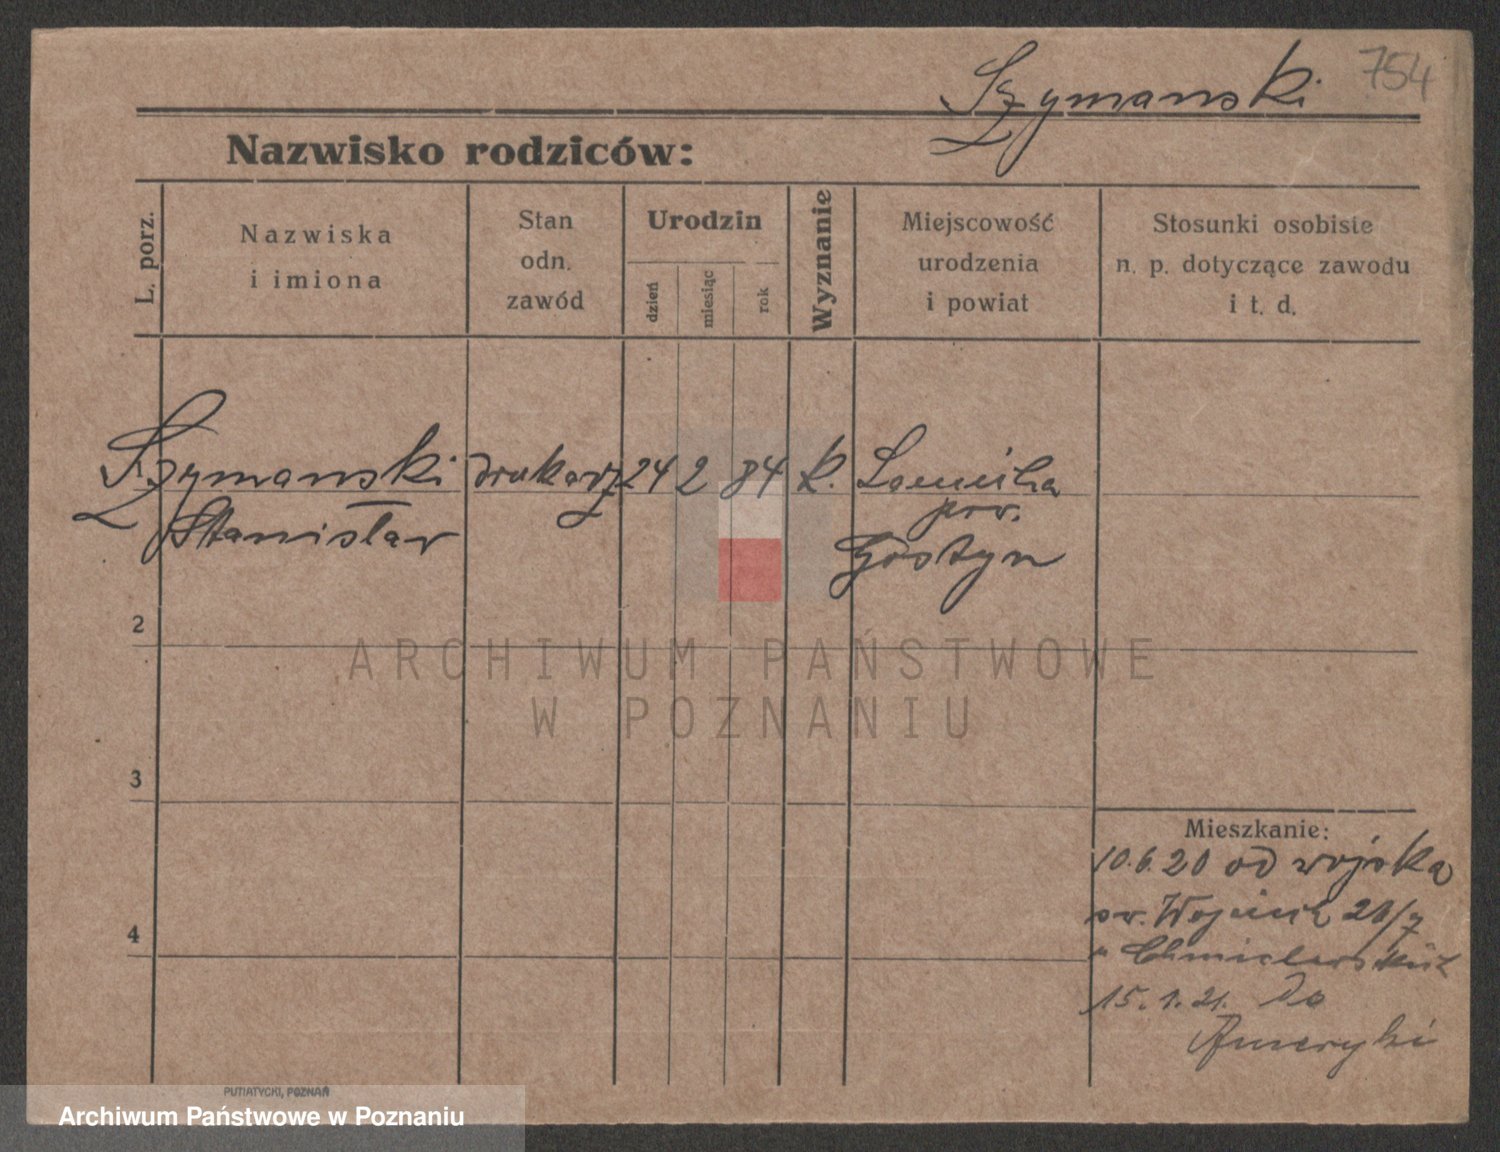 Szymanski 754
Nazwisko rodziców:
L. porz.
Nazwiska
i imiona
Stan
odn.
zawód
Urodzin
dzień
miesiąc
rok
Wyznanie
Miejscowość
urodzenia
i powiat
Stosunki osobiste
n. p. dotyczące zawodu
i t. d.
Szymanski drukarz 24 2 84 k.
Stanisław
pow.
Gostyn
2
3
4
Mieszkanie:
10.6.20 od wojska
św. Wojciech
15.1.21. do
Ameryki
ARCHIWUM PAŃSTWOWE
W POZNANIU
PUTIATYCKI, POZNAŃ
Archiwum Państwowe w Poznaniu